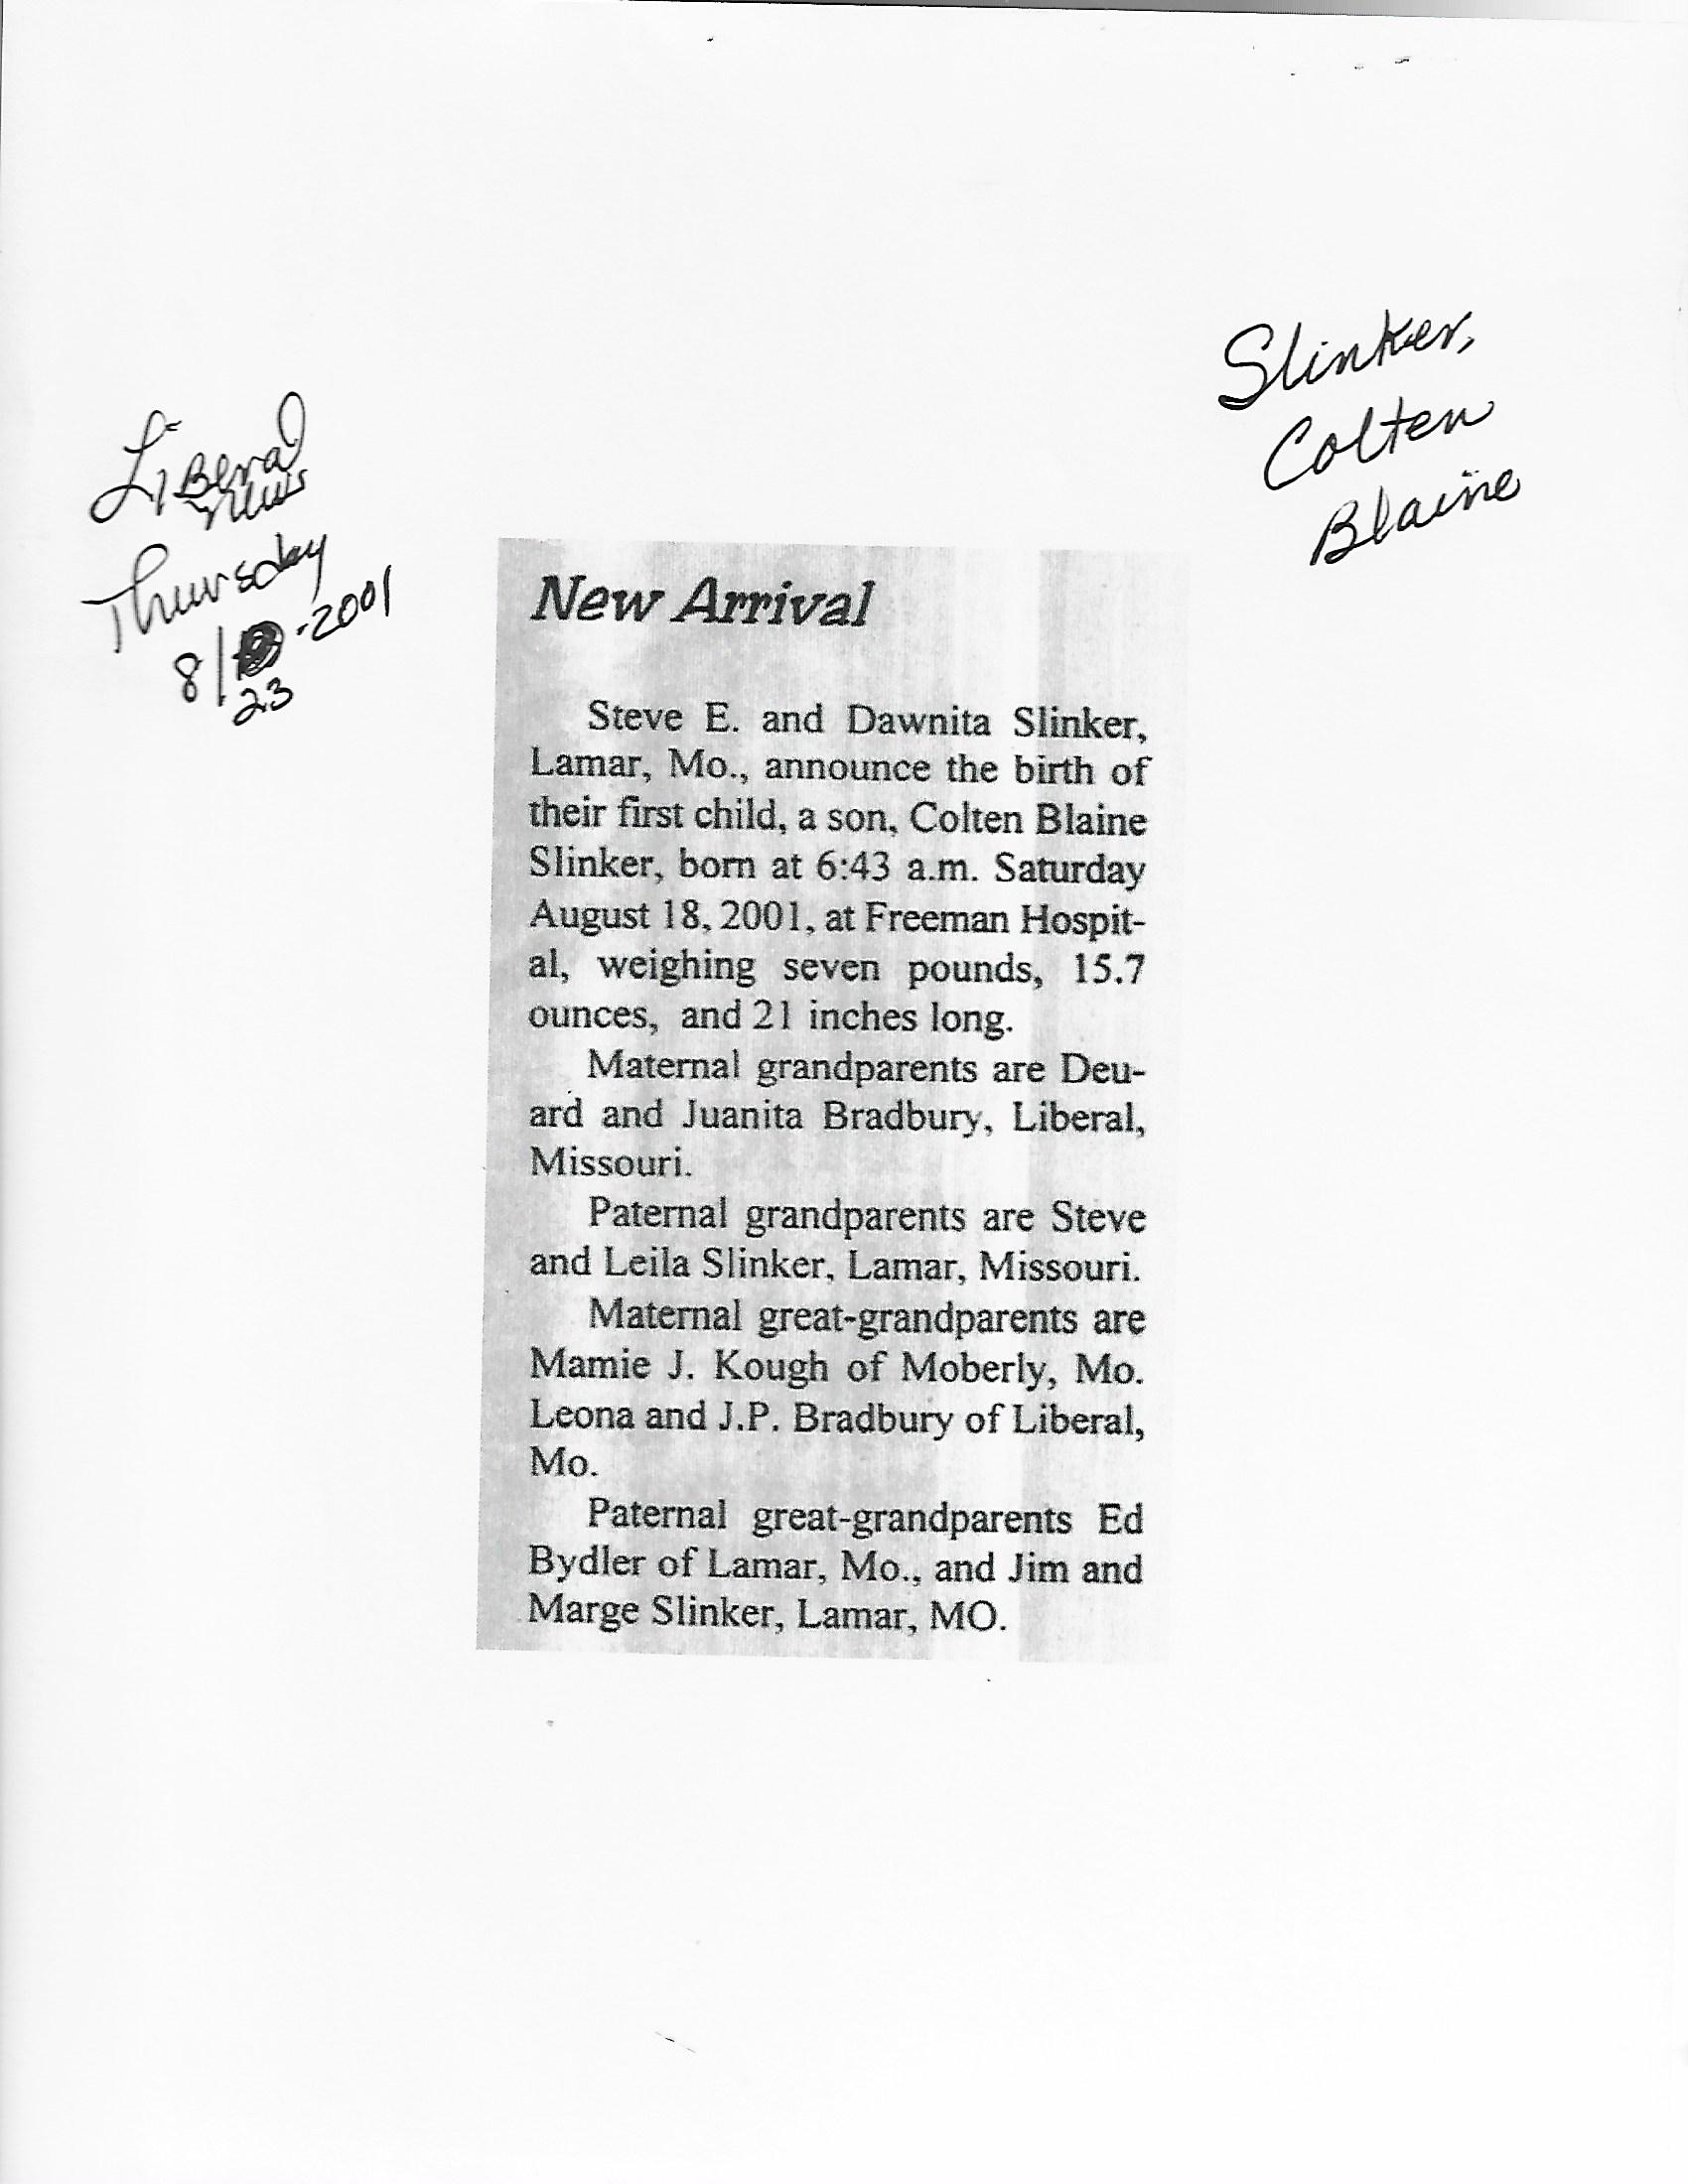 Slinker,
Colten
Blaine
Liberal
News
Thursday
8/ -2001
23
New Arrival
Steve E. and Dawnita Slinker,
Lamar, Mo., announce the birth of
their first child, a son, Colten Blaine
Slinker, born at 6:43 a.m. Saturday
August 18, 2001, at Freeman Hospit-
al, weighing seven pounds, 15.7
ounces, and 21 inches long.
Maternal grandparents are Deu-
ard and Juanita Bradbury, Liberal,
Missouri.
Paternal grandparents are Steve
and Leila Slinker, Lamar, Missouri.
Maternal great-grandparents are
Mamie J. Kough of Moberly, Mo.
Leona and J.P. Bradbury of Liberal,
Mo.
Paternal great-grandparents Ed
Bydler of Lamar, Mo., and Jim and
Marge Slinker, Lamar, MO.